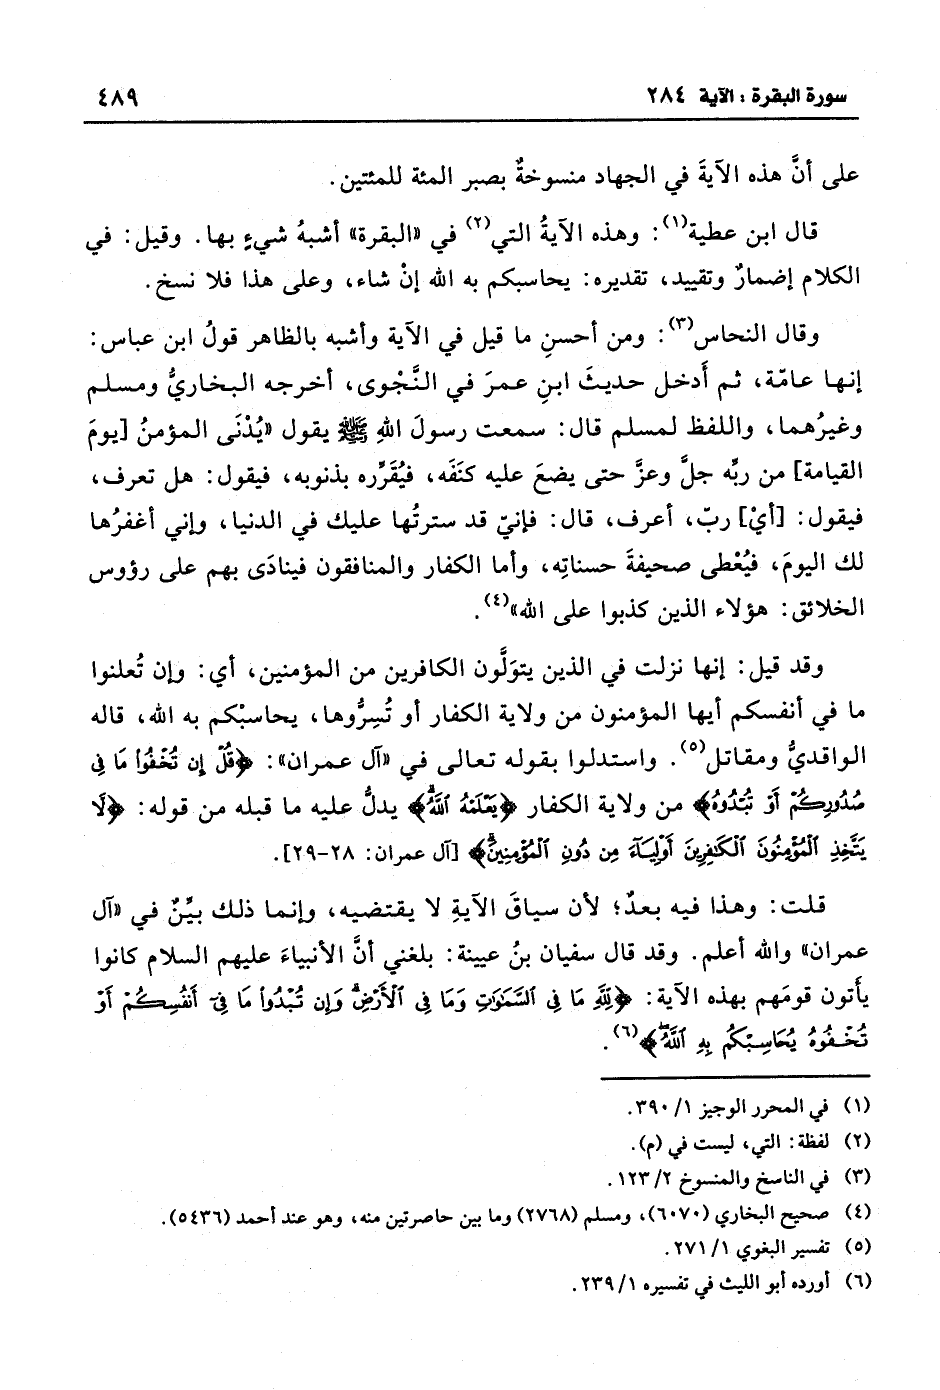 سورة البقرة : الآية ٢٨٤
٤٨٩
على أنَّ هذه الآيةَ في الجهاد منسوخةٌ بصبر المئة للمئتين.
قال ابن عطية(١): وهذه الآيةُ التي(٢) في «البقرة» أشبهُ شيءٍ بها. وقيل: في
الكلام إضمارٌ وتقييد، تقديره: يحاسبكم به الله إنْ شاء، وعلى هذا فلا نسخ.
وقال النحاس(٣): ومن أحسنِ ما قيل في الآية وأشبه بالظاهر قولُ ابن عباس:
إنها عامّة، ثم أَدخل حديثَ ابنِ عمرَ في النَّجْوى، أخرجه البخاريُّ ومسلم
وغيرُهما، واللفظ لمسلم قال: سمعت رسولَ اللهِ ﷺ يقول «يُدْنَى المؤمنُ [يومَ
القيامة] من ربِّه جلَّ وعزَّ حتى يضعَ عليه كنَفَه، فيُقَرِّره بذنوبه، فيقول: هل تعرف،
فيقول: [أيْ] ربّ، أعرف، قال: فإنيّ قد سترتُها عليك في الدنيا، وإني أغفرُها
لك اليومَ، فيُعْطى صحيفةَ حسناتِه، وأما الكفار والمنافقون فينادَى بهم على رؤوس
الخلائق: هؤلاء الذين كذبوا على الله»(٤).
وقد قيل: إنها نزلت في الذين يتوَلَّون الكافرين من المؤمنين، أي: وإن تُعلنوا
ما في أنفسكم أيها المؤمنون من ولاية الكفار أو تُسِرُّوها، يحاسبْكم به الله، قاله
الواقديُّ ومقاتل(٥). واستدلوا بقوله تعالى في «آل عمران»: ﴿قُلْ إِن تُخْفُوا۟ مَا فِى
صُدُورِكُمْ أَوْ تُبْدُوهُ﴾ من ولاية الكفار ﴿يَعْلَمْهُ ٱللَّهُ﴾ يدلُّ عليه ما قبله من قوله: ﴿لَّا
يَتَّخِذِ ٱلْمُؤْمِنُونَ ٱلْكَٰفِرِينَ أَوْلِيَآءَ مِن دُونِ ٱلْمُؤْمِنِينَ﴾ [آل عمران: ٢٨-٢٩].
قلت: وهذا فيه بعدٌ؛ لأن سياقَ الآيةِ لا يقتضيه، وإنما ذلك بيِّنٌ في «آل
عمران» والله أعلم. وقد قال سفيان بنُ عيينة: بلغني أنَّ الأنبياءَ عليهم السلام كانوا
يأتون قومَهم بهذه الآية: ﴿لِلَّهِ مَا فِى ٱلسَّمَٰوَٰتِ وَمَا فِى ٱلْأَرْضِ وَإِن تُبْدُوا۟ مَا فِىٓ أَنفُسِكُمْ أَوْ
تُخْفُوهُ يُحَاسِبْكُم بِهِ ٱللَّهُ﴾(٦).
(١) في المحرر الوجيز ١/ ٣٩٠.
(٢) لفظة: التي، ليست في (م).
(٣) في الناسخ والمنسوخ ٢/ ١٢٣.
(٤) صحيح البخاري (٦٠٧٠)، ومسلم (٢٧٦٨) وما بين حاصرتين منه، وهو عند أحمد (٥٤٣٦).
(٥) تفسير البغوي ١/ ٢٧١.
(٦) أورده أبو الليث في تفسيره ١/ ٢٣٩.